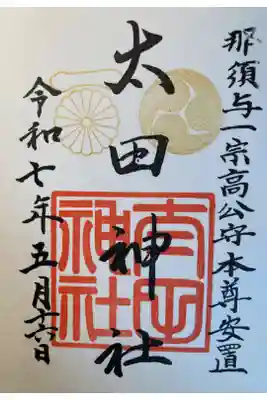 那須与一宗高公守本尊安置
太田神社
太田神社
令和七年五月六日